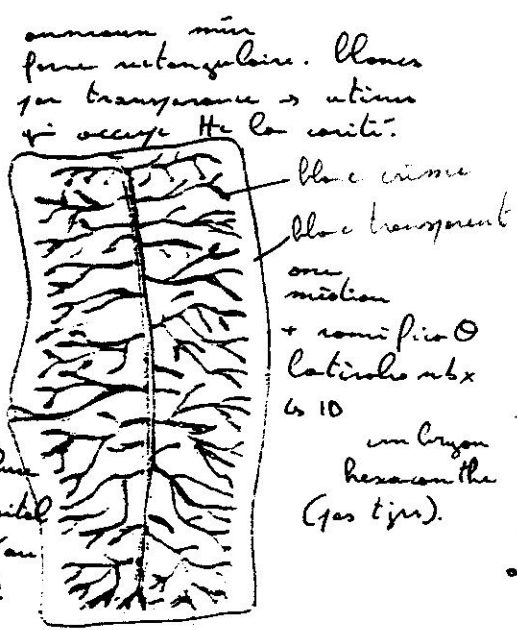 anneaux mûrs
forme rectangulaire. Blancs
par transparence → utérus
qui occupe tte la cavité.
blanc crème
blanc transparent
axe
médian
+ ramifica⊖
latérales nbx
embryon
hexacanthe
(pas tjrs).